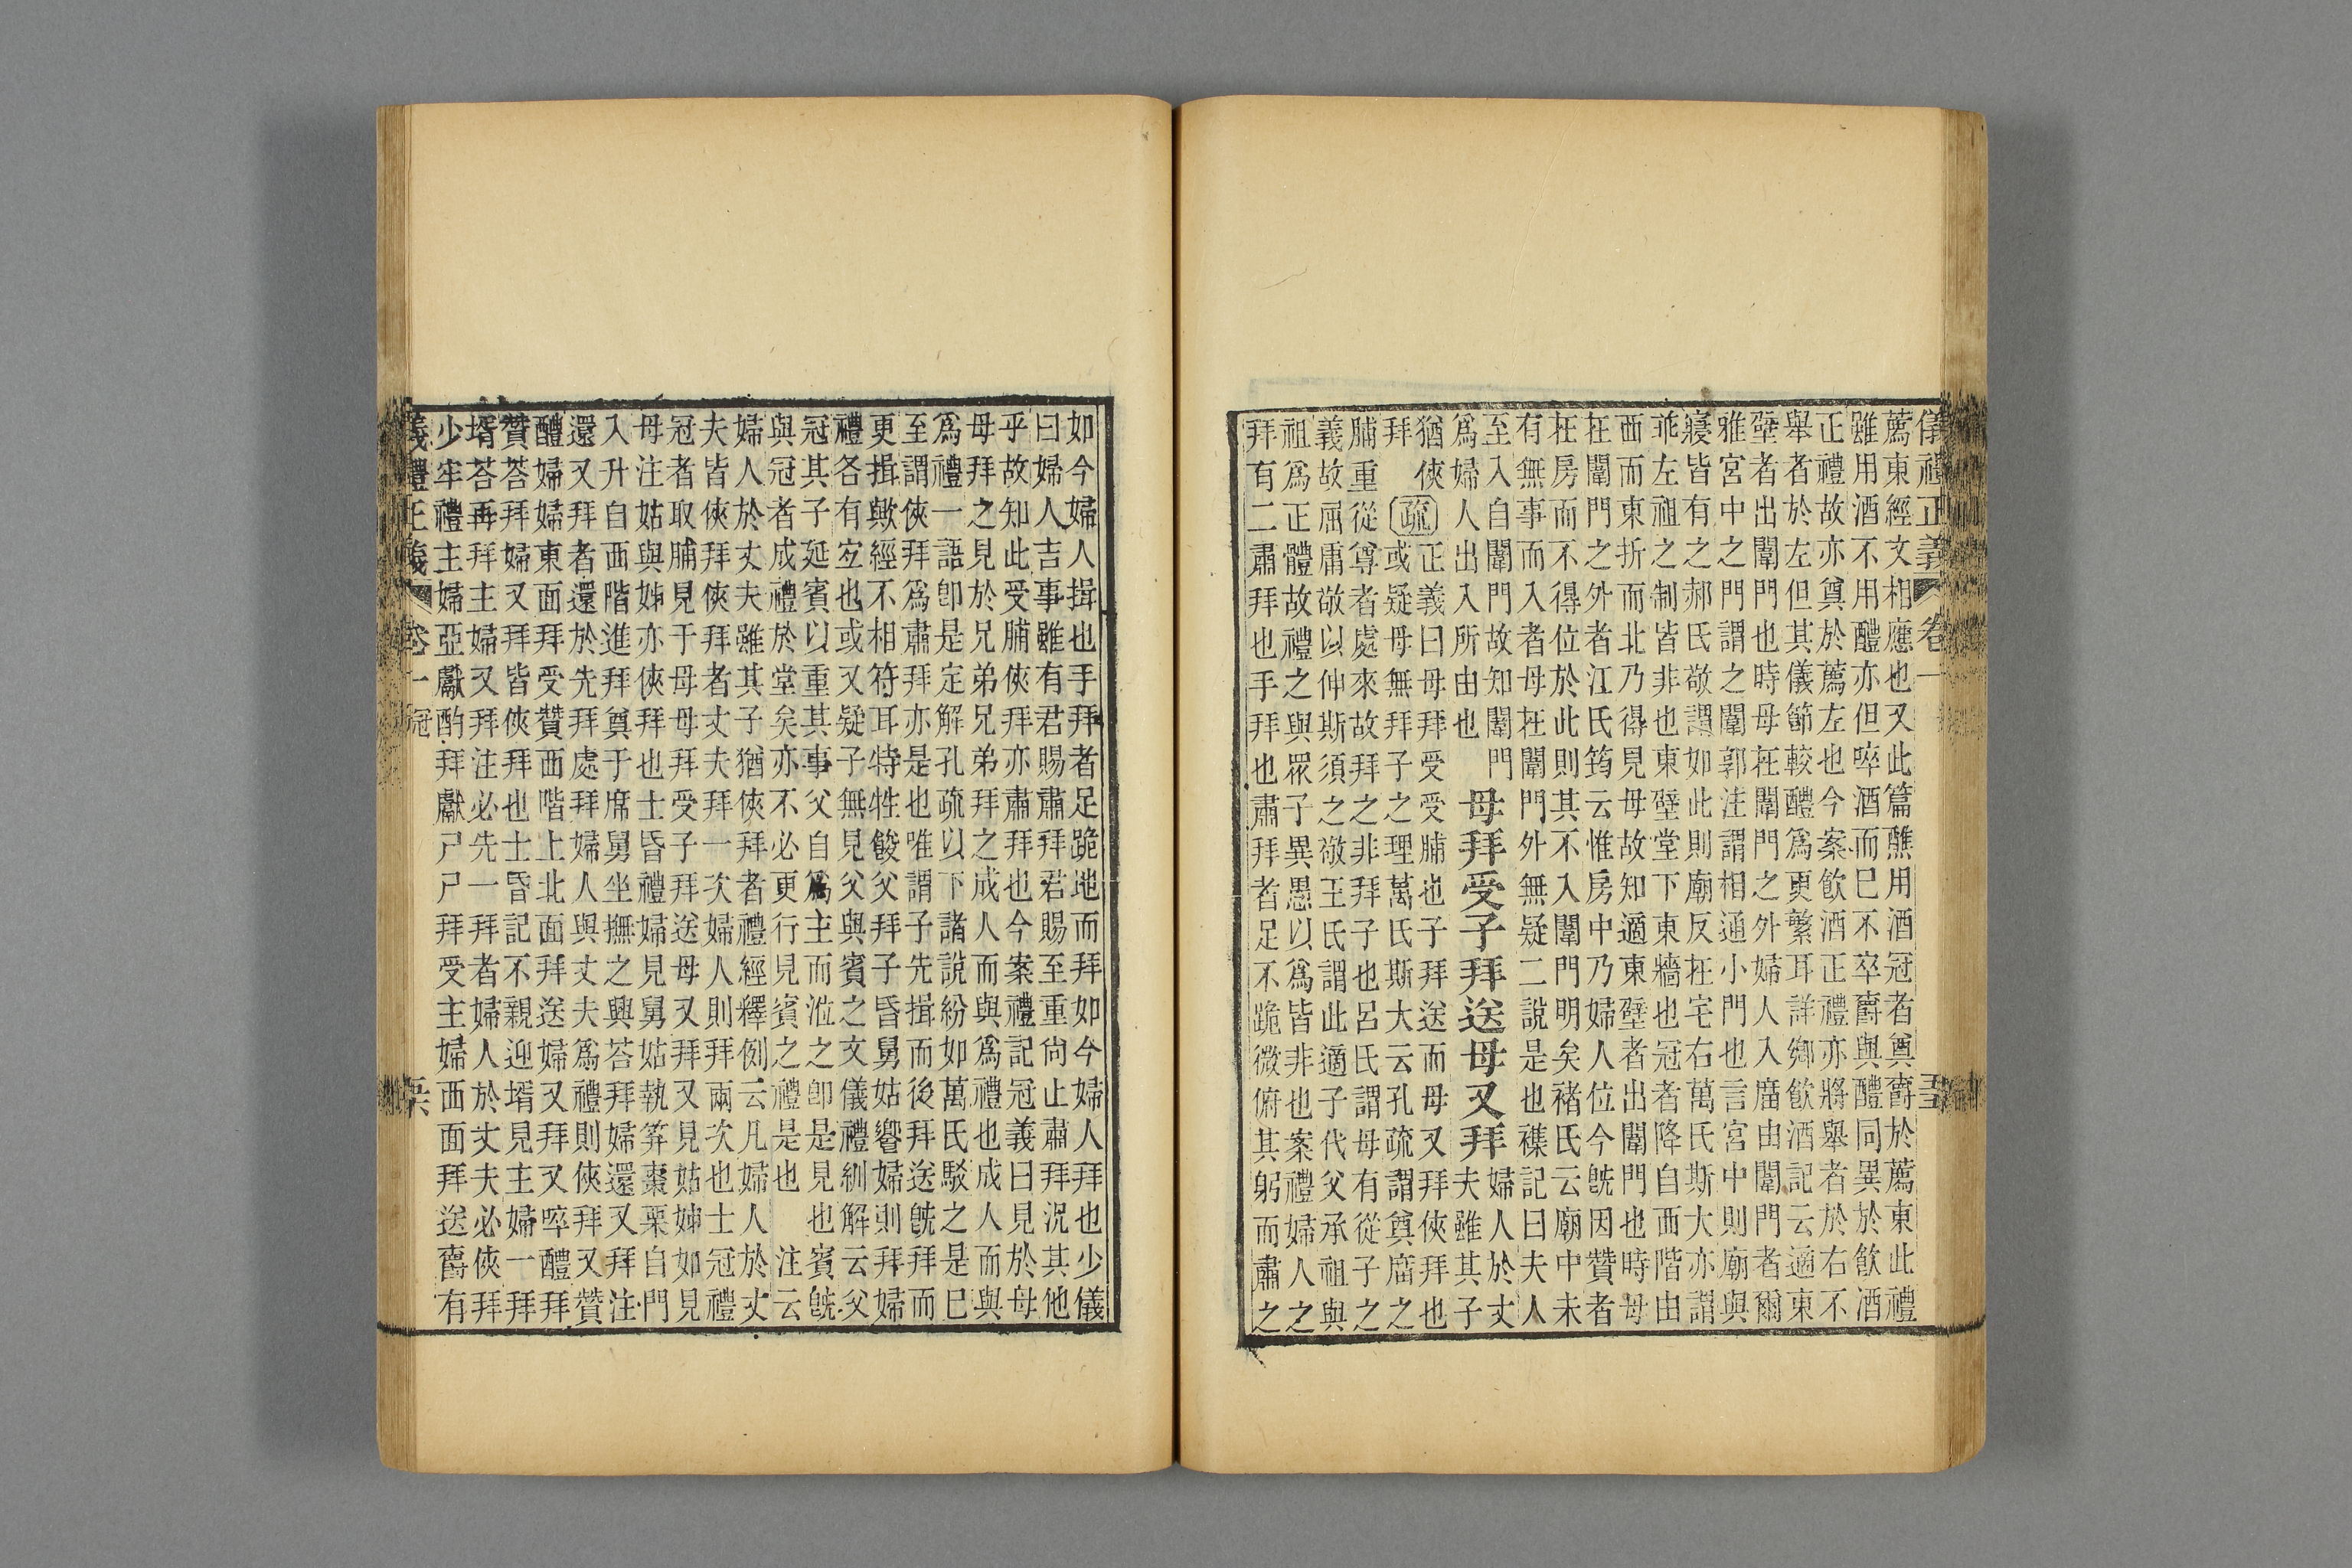 儀禮正義 卷一 五
薦東經文相應也又此篇醮用酒冠者奠爵於薦東此禮
雖用酒不用醴亦但啐酒而已不卒爵與醴同異於飲酒
正禮故亦奠於薦左也今案飲酒正禮亦將舉者於右不
舉者於左但其儀節較醴爲更繁耳詳鄉飲酒記云適東
壁者出闈門也時母在闈門之外婦人入廟由闈門者爾
雅宮中之門謂之闈郭注謂相通小門也言宮中則廟與
寢皆有之郝氏敬謂如此則廟反在宅右萬氏斯大亦謂
乖左祖之制皆非也東壁堂下東牆也冠者降自西階由
西而東折而北乃得見母故知適東壁者出闈門也時母
在闈門之外者江氏筠云惟房中乃婦人位今旣因贊者
在房而不得位於此則其不入闈門明矣褚氏云廟中未
有無事而入者母在闈門外無疑二說是也襍記曰夫人
至入自闈門故知闈門
爲婦人出入所由也
母拜受子拜送母又拜
婦人於丈
夫雖其子
猶俠
拜
疏
正義曰母拜受受脯也子拜送而母又拜俠拜也
或疑母無拜子之理萬氏斯大云孔疏謂奠廟之
脯重從尊者處來故拜之非拜子也呂氏謂母有從子之
義故屈庸敬以伸斯須之敬王氏謂此適子代父承祖與
祖爲正體故禮之與眾子異愚以爲皆非也案禮婦人之
拜有二肅拜也手拜也肅拜者足不跪微俯其躬而肅之
如今婦人揖也手拜者足跪地而拜如今婦人拜也少儀
曰婦人吉事雖有君賜肅拜君賜至重尙止肅拜況其他
乎故知此受脯俠拜亦肅拜也今案禮記冠義曰見於母
母拜之見於兄弟兄弟拜之成人而與爲禮也成人而與
爲禮一語卽是定解孔疏以下諸說紛如萬氏駁之是已
至謂俠拜爲肅拜亦是也唯謂子先揖而後拜送旣拜而
更揖歟經不相符耳特牲餕父拜子昏舅姑饗婦則拜婦
禮各有宜也或又疑子無見父與賓之文儀禮糾解云父
冠其子延賓以重其事父自爲主而涖之卽是見也賓旣
與冠者成禮於堂矣亦不必更行見賓之禮是也 注云
婦人於丈夫雖其子猶俠拜者禮經釋例云凡婦人於丈
夫皆俠拜俠拜者丈夫拜一次婦人則拜兩次也士冠禮
冠者取脯見于母母拜受子拜送母又拜又見姑姊如見
母注姑與姊亦俠拜也士昏禮婦見舅姑執笲棗栗自門
入升自西階進拜奠于席舅坐撫之興荅拜婦還又拜注
還又拜者還於先拜處拜婦人與丈夫爲禮則俠拜又贊
醴婦婦東面拜受贊西階上北面拜送婦又拜又啐醴拜
贊荅拜婦又拜皆俠拜也士昏記不親迎壻見主婦一拜
壻荅再拜主婦又拜注必先一拜者婦人於丈夫必俠拜
少牢禮主婦亞獻酌拜獻尸尸拜受主婦西面拜送爵有
義禮正義 卷一 冠 六